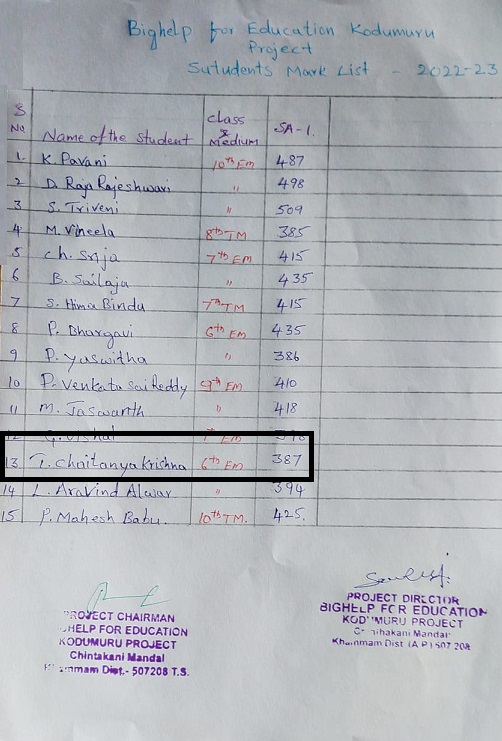 Bighelp for Education Kodumuru
Project
Sutudents Mark List - 2022-23
S No Name of the Student class & Medium SA-1.
1. K Pavani 10th EM 487
2 D. Raja Rajeshwari " 498
3 S. Triveni " 509
4 M. Vineela 8th TM 385
5 Ch. Srija 7th EM 415
6 B. Sailaja " 435
7 S. Hima Bindu 7th TM 415
8 P. Bhargavi 6th EM 435
9 P. Yaswitha " 386
10 P. Venkata Sai Reddy 9th EM 410
11 M. Jaswanth " 418
12 Vishal EM
13 T. Chaitanya Krishna 6th EM 387
14 L. Aravind Alwar " 394
15 P. Mahesh Babu. 10th TM. 425.
PROJECT CHAIRMAN
BIGHELP FOR EDUCATION
KODUMURU PROJECT
Chintakani Mandal
Khammam Dist.- 507208 T.S.
PROJECT DIRECTOR
BIGHELP FOR EDUCATION
KODUMURU PROJECT
Chintakani Mandal
Khammam Dist (A P) 507 208